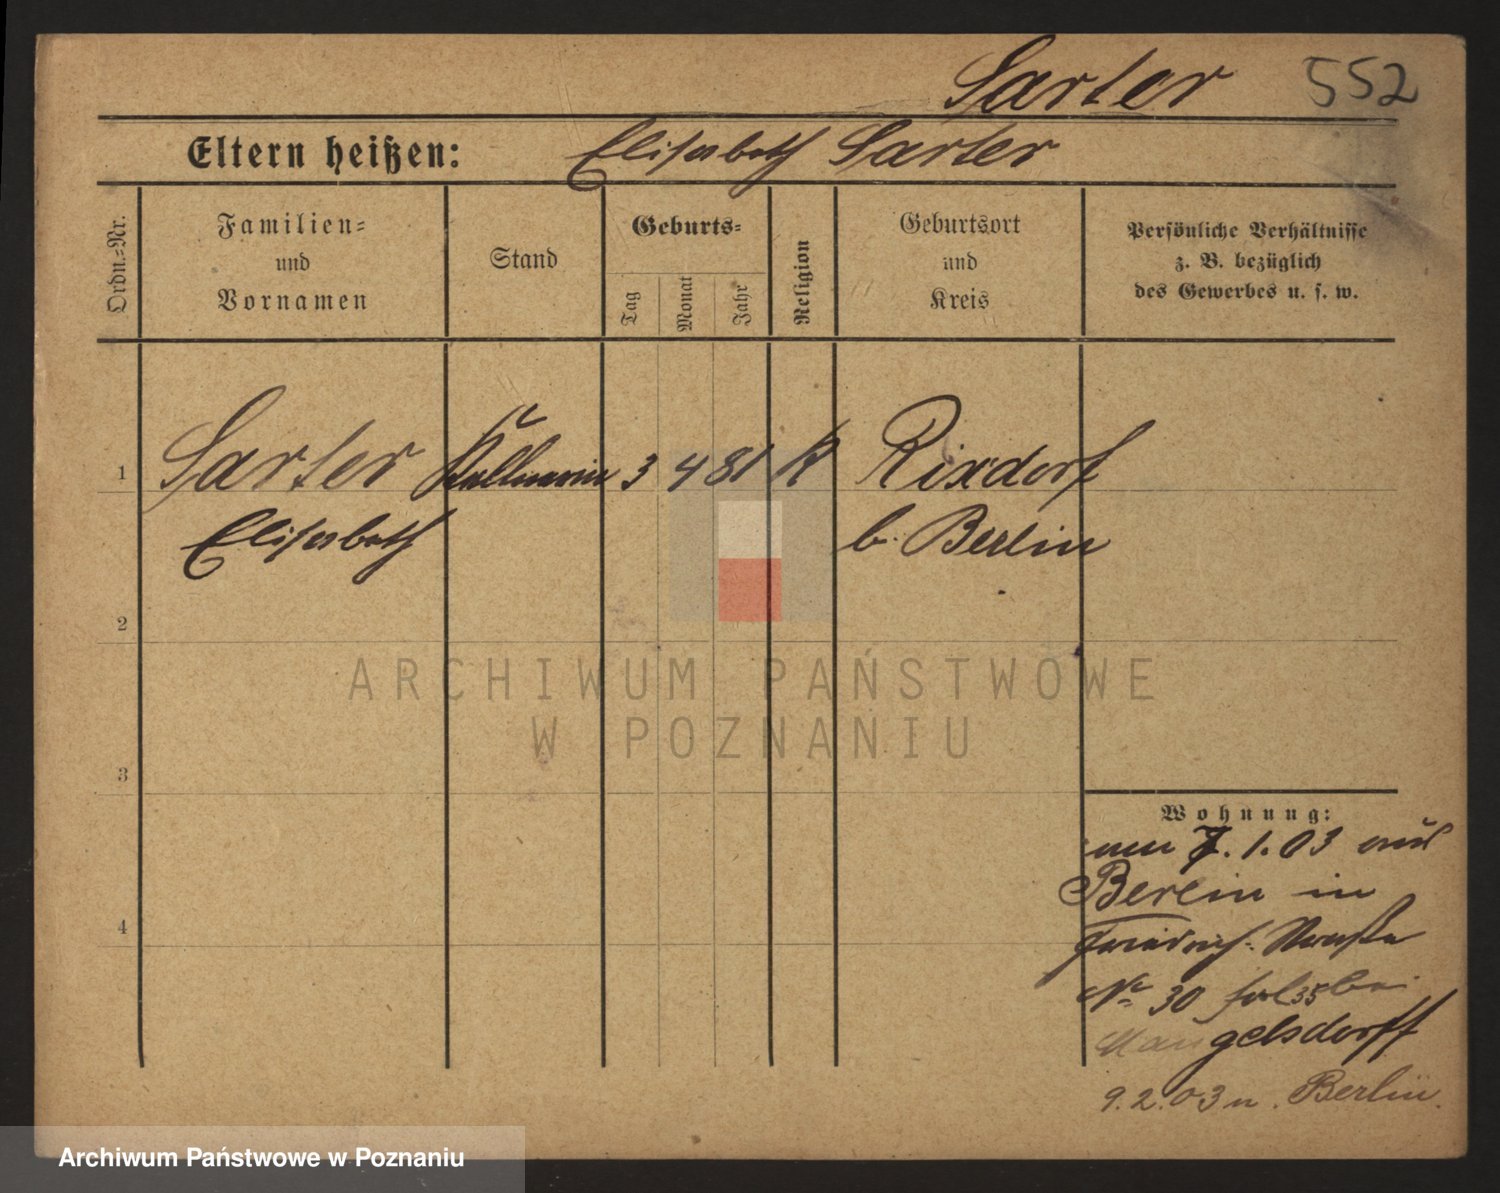 Sarter 552
Eltern heißen: Elisabeth Sarter
Ordn.=Nr.
Familien=
und
Vornamen
Stand
Geburts=
Tag
Monat
Jahr
Religion
Geburtsort
und
Kreis
Persönliche Verhältnisse
z. B. bezüglich
des Gewerbes u. s. w.
1 Sarter Kellnerin 3 4 81 K Rixdorf
Elisabeth b. Berlin
2
ARCHIWUM PAŃSTWOWE
W POZNANIU
3
Wohnung:
7. 1. 03 aus
Berlin in
Friedrich-Straße
No 30 35 bei
Mangelsdorff
9. 2. 03 n. Berlin.
4
Archiwum Państwowe w Poznaniu